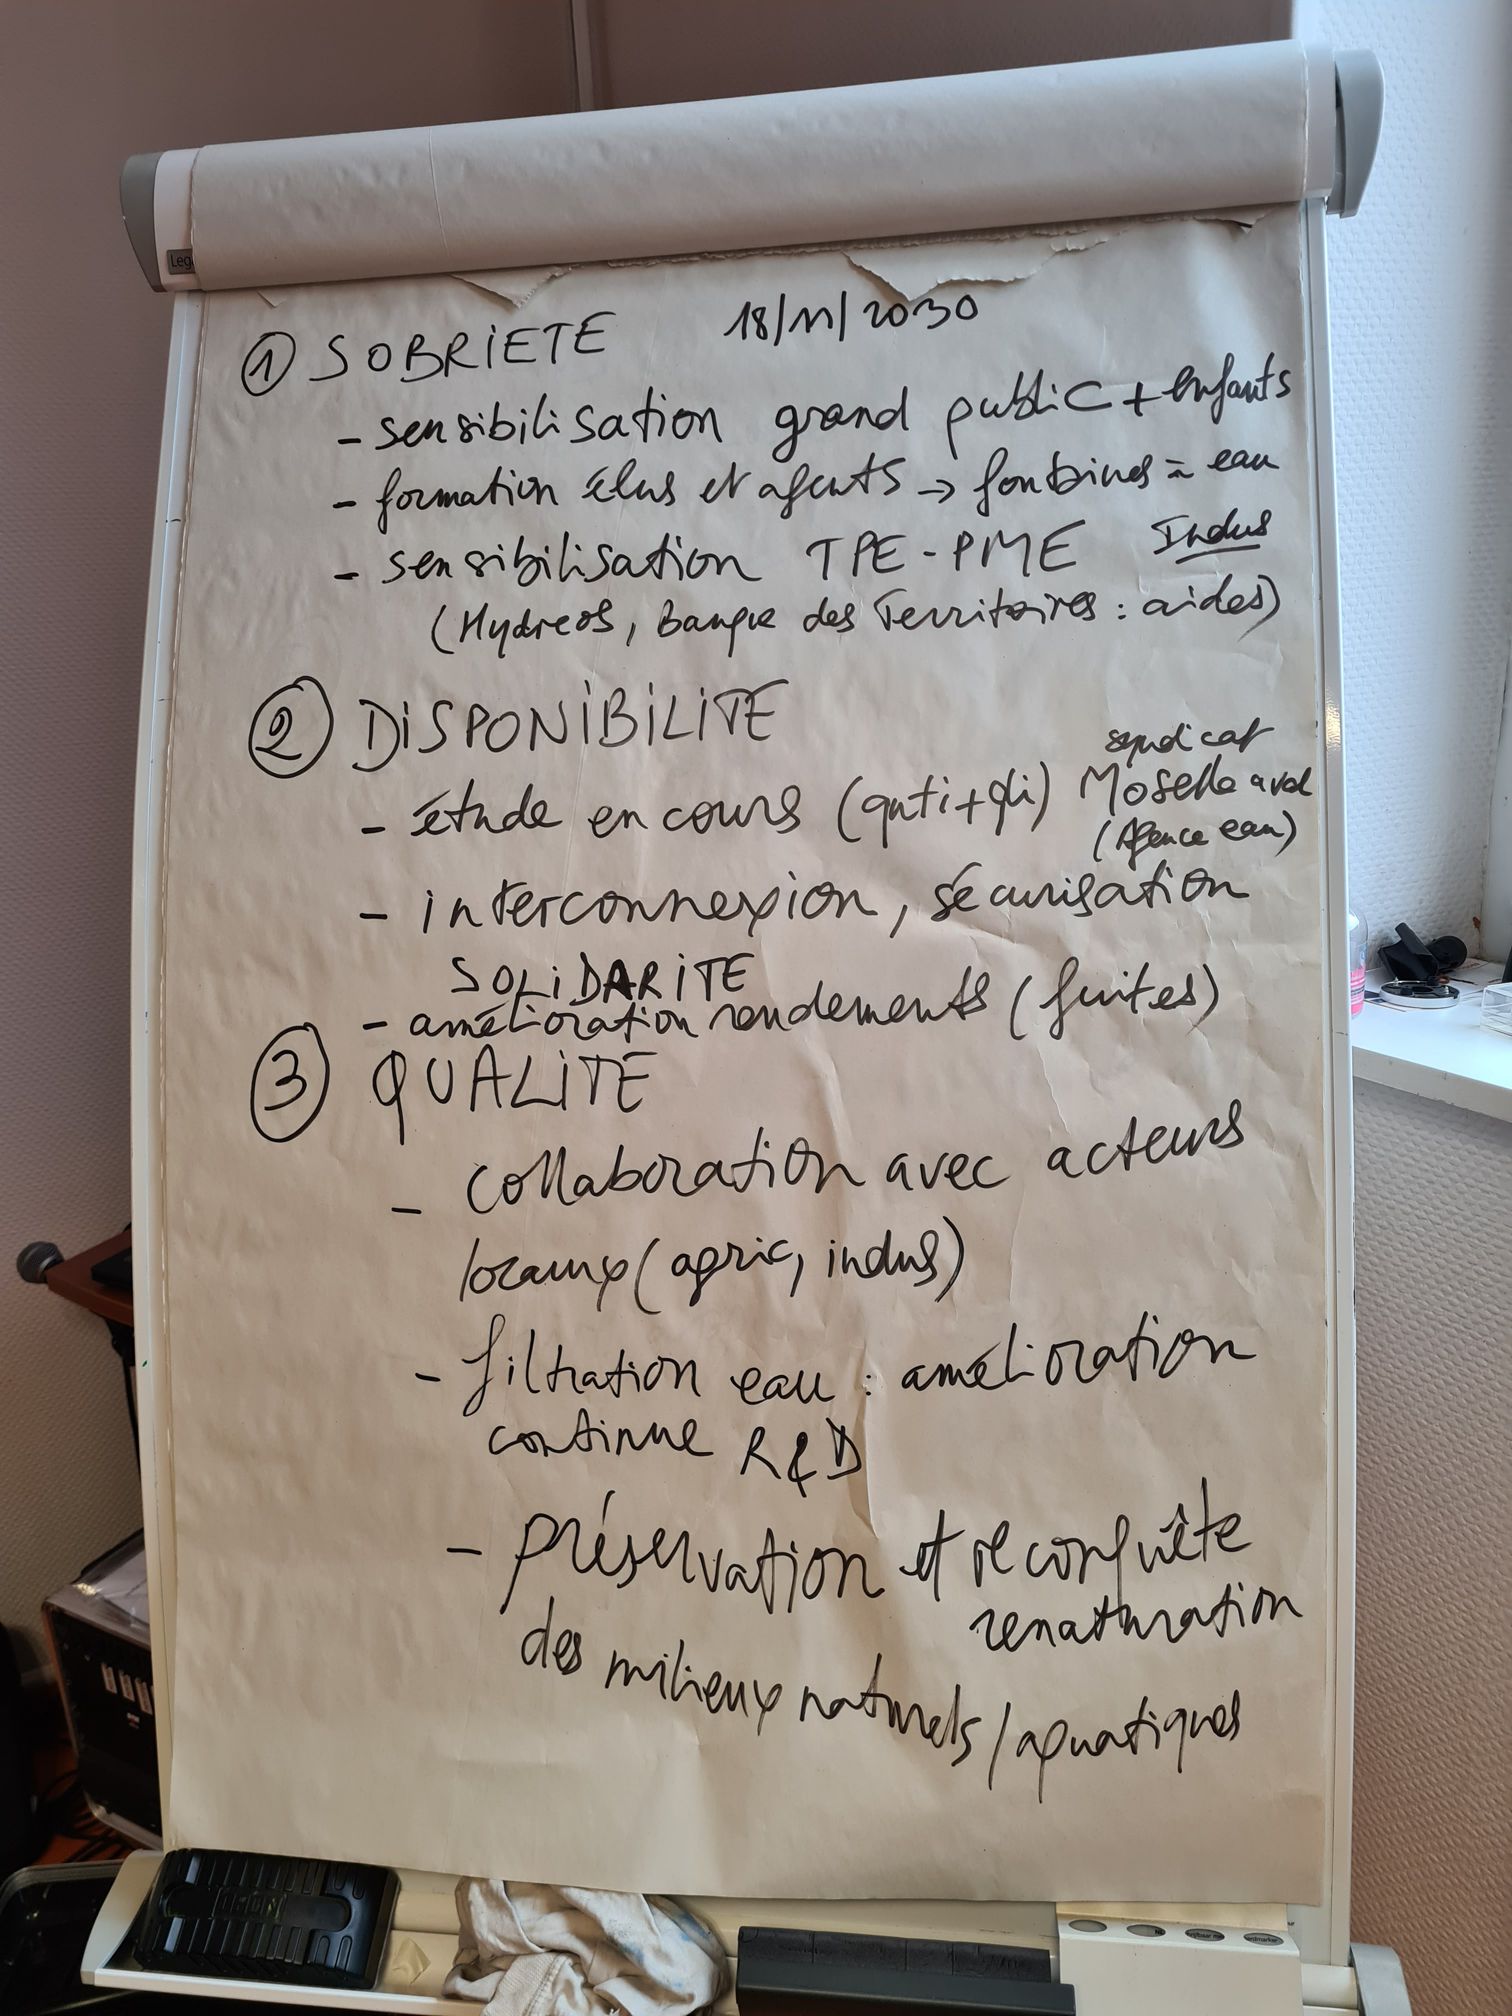 Leg
① SOBRIETE 18/11/2030
- sensibilisation grand public + enfants
- formation élus et agents → fontaines = eau
- sensibilisation TPE-PME Indus
(Hydreos, Banque des Territoires : aides)
② DISPONIBILITE
syndicat
- étude en cours (qnti+qli) Moselle aval
(Agence eau)
- interconnexion, sécurisation
SOLIDARITE
- amélioration rendements (fuites)
③ QUALITE
- collaboration avec acteurs
locaux (agric, indus)
- filtration eau : amélioration
continue R&D
- préservation et reconquête
renaturation
des milieux naturels / aquatiques